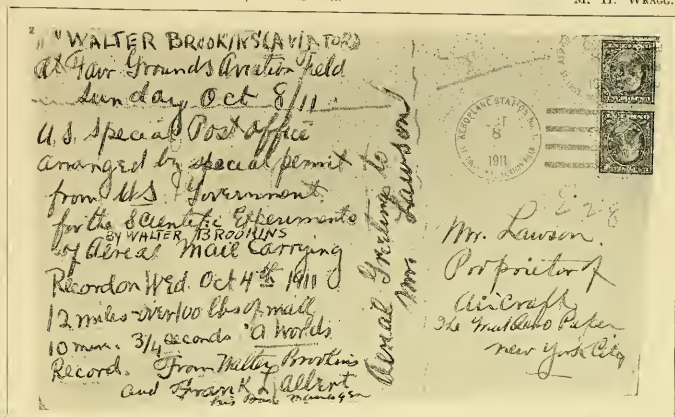 M. H. WRAGG.
"WALTER BROOKINS (AVIATOR)
at Fair Grounds Aviation field
Sunday Oct 8/11
U.S. Special Post Office
arranged by special permit
from U.S. Government
for the Scientific Experiments
BY WALTER BROOKINS
of Aereal Mail Carrying
Record on Wed. Oct 4th 1911
12 miles - over 100 lbs of mail
10 min. 3/4 seconds "a Words
Record. From Walter Brookins
and Frank L. Albert
his Manager
Aereal Greeting to
Mr. Lawson
AEROPLANE STATION No. 1
8
1911
Mr. Lawson.
Proprietor of
AirCraft
The Paper
New York City